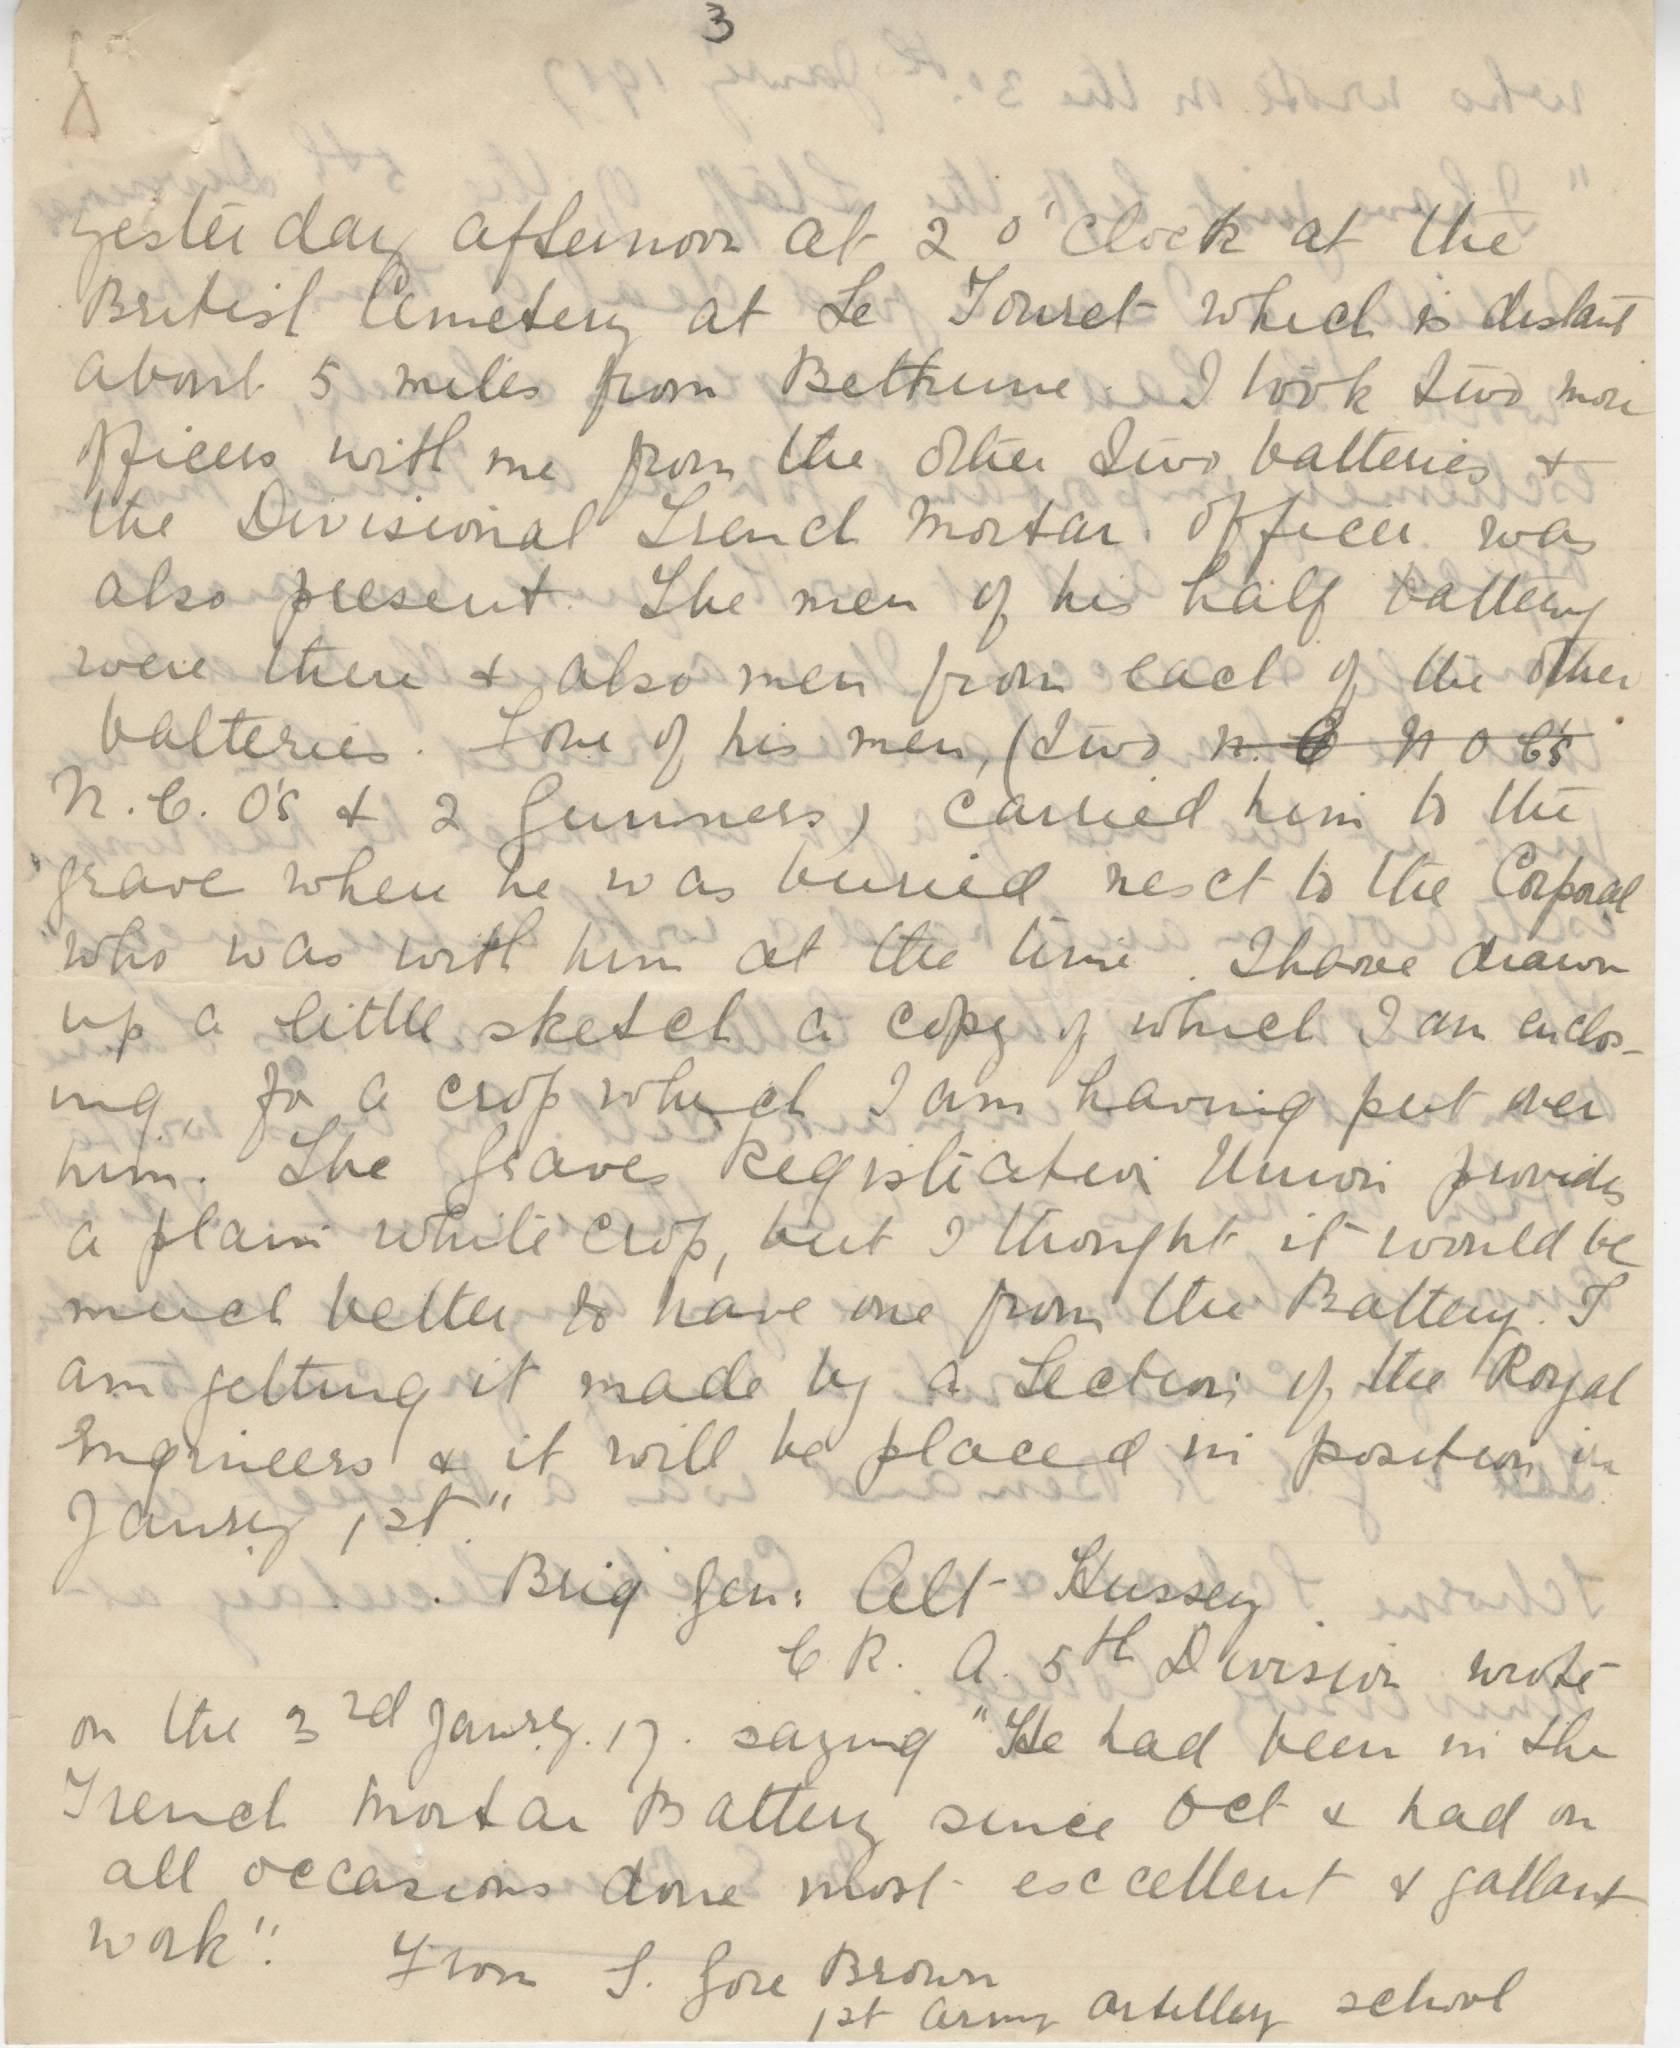 3
yesterday afternoon at 2 o'clock at the
British Cemetery at Le Touret which is distant
about 5 miles from Bethune. I took two more
officers with me from the other two batteries &
the Divisional Trench Mortar officer was
also present. The men of his half battery
were there & also men from each of the other
batteries. Four of his men, (two N. C N O C's
N. C. O's & 2 Gunners) carried him to the
grave where he was buried next to the Corporal
who was with him at the time. I have drawn
up a little sketch a copy of which I am enclos-
ing, for a cross which I am having put over
him. The Graves Registration Union provides
a plain white cross, but I thought it would be
much better to have one from the Battery. I
am getting it made by a Section of the Royal
Engineers & it will be placed in position in
Janrey 1st."
Brig Gen: Alt Hussey
C. R. A. 5th Division wrote
on the 3rd Janrey. 17. saying "He had been in the
Trench Mortar Battery since Oct & had on
all occasions done most excellent & gallant
work".
From S. Gore Brown
1st Army Artillery School